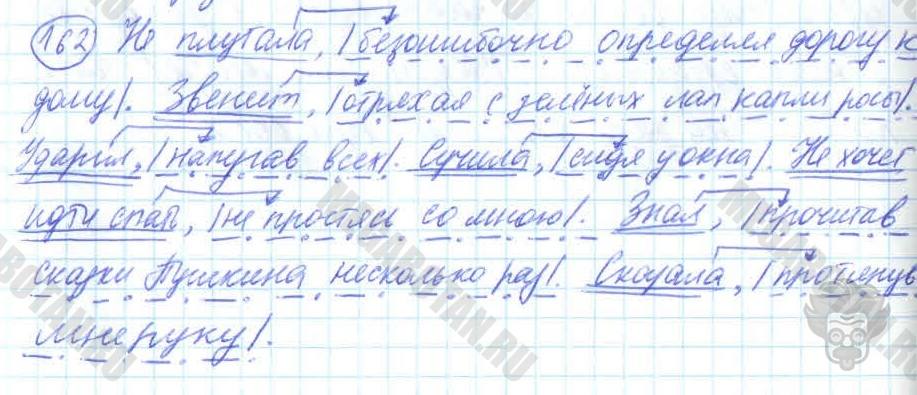 162 Не плутала, |безошибочно определяя дорогу к
дому|. Звенит, |отряхая с зелёных лап капли росы|.
Ударил, |напугав всех|. Сучила, |сидя у окна|. Не хочет
идти спать, |не простясь со мною|. Знал, |прочитав
сказки Пушкина несколько раз|. Сказала, |протянув
мне руку|.
MOIBOTAN.RU